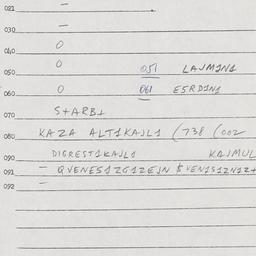 021 —
030 —
040 O
050 O 051 LAJMIN1
060 O 061 ESRDIN1
070 S+ARB1
080 KAZA ALT1KAJL1 (738 (002
090 DIGREST1KAJL1 KAJMUL
091 — QVENES1ZG1ZEJN $VEN1S1ZN1Z+
092 —